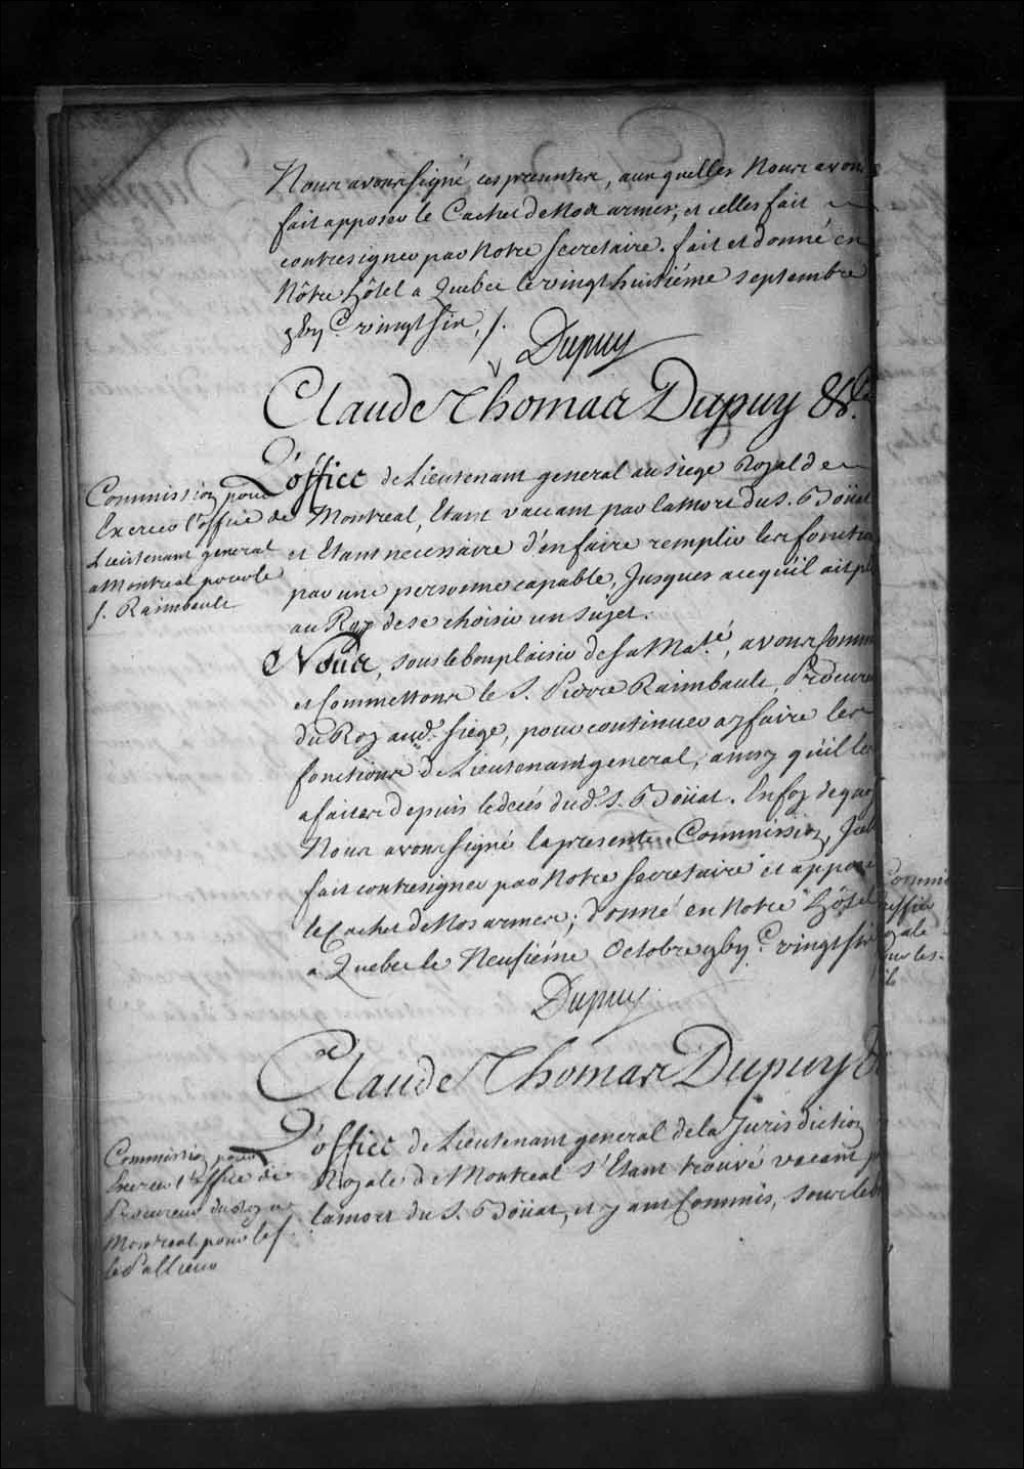 Nous avons signé ces presentes, aux quelles Nous avons
fait apposer le Cachet de Nos armes, et celles fait
contresigner par Notre Secretaire. fait et donné en
Nôtre hôtel a Quebec le vingt huitiéme septembre
gby.c vingt six, /.
Dupuy
Claude Thomas Dupuy &c.
Commission pour
Exercer l'office de
Lieutenant general
a Montreal pour le
S. Raimbault
L'office de Lieutenant general au siege Royal de
Montreal, Etant vaccant par la mort du S. Boüat
et Etant necessaire d'en faire remplir les fonctio
par une personne capable, Jusques a cequ'il ait pl
au Roy de se choisir un sujet.
Nous, sous le bon plaisir de Sa Ma.té, avons Comm
et Commettons le S. Pierre Raimbault, Procureu
du Roy aud. siege, pour continuer a y faire les
fonctions de Lieutenant general, ainsy qu'il les
a faites depuis le decés dud. S. Boüat. En foy de quoy
Nous avons signé la presente Commission,
fait contresigner par Notre Secretaire et appose
le Cachet de Nos armes; donné en Notre hôtel
a Quebec le Neufiéme Octobre gby.c vingt six
Dupuy
Claude Thomas Dupuy &
Commission pour
Exercer l'office de
Procureur du Roy a
Montreal pour le S.
L'office de Lieutenant general de la Jurisdiction
Royale de Montreal s'Etant trouvé vacant p
la mort du S. Boüat, et y ant Commis, sous le b
Commi